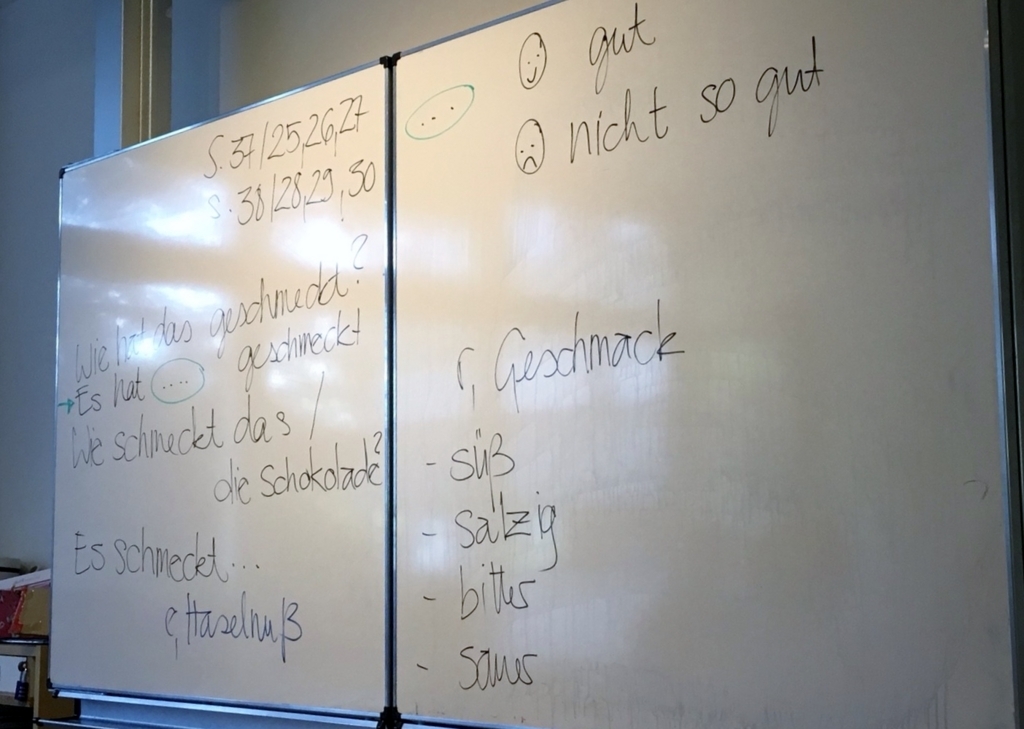 S. 37/25,26,27
S. 38/28,29,30
Wie hat das geschmeckt?
→ Es hat .... geschmeckt
Wie schmeckt das /
die Schokolade?
Es schmeckt...
e, Haselnuß
... gut
nicht so gut
r, Geschmack
- süß
- salzig
- bitter
- sauer